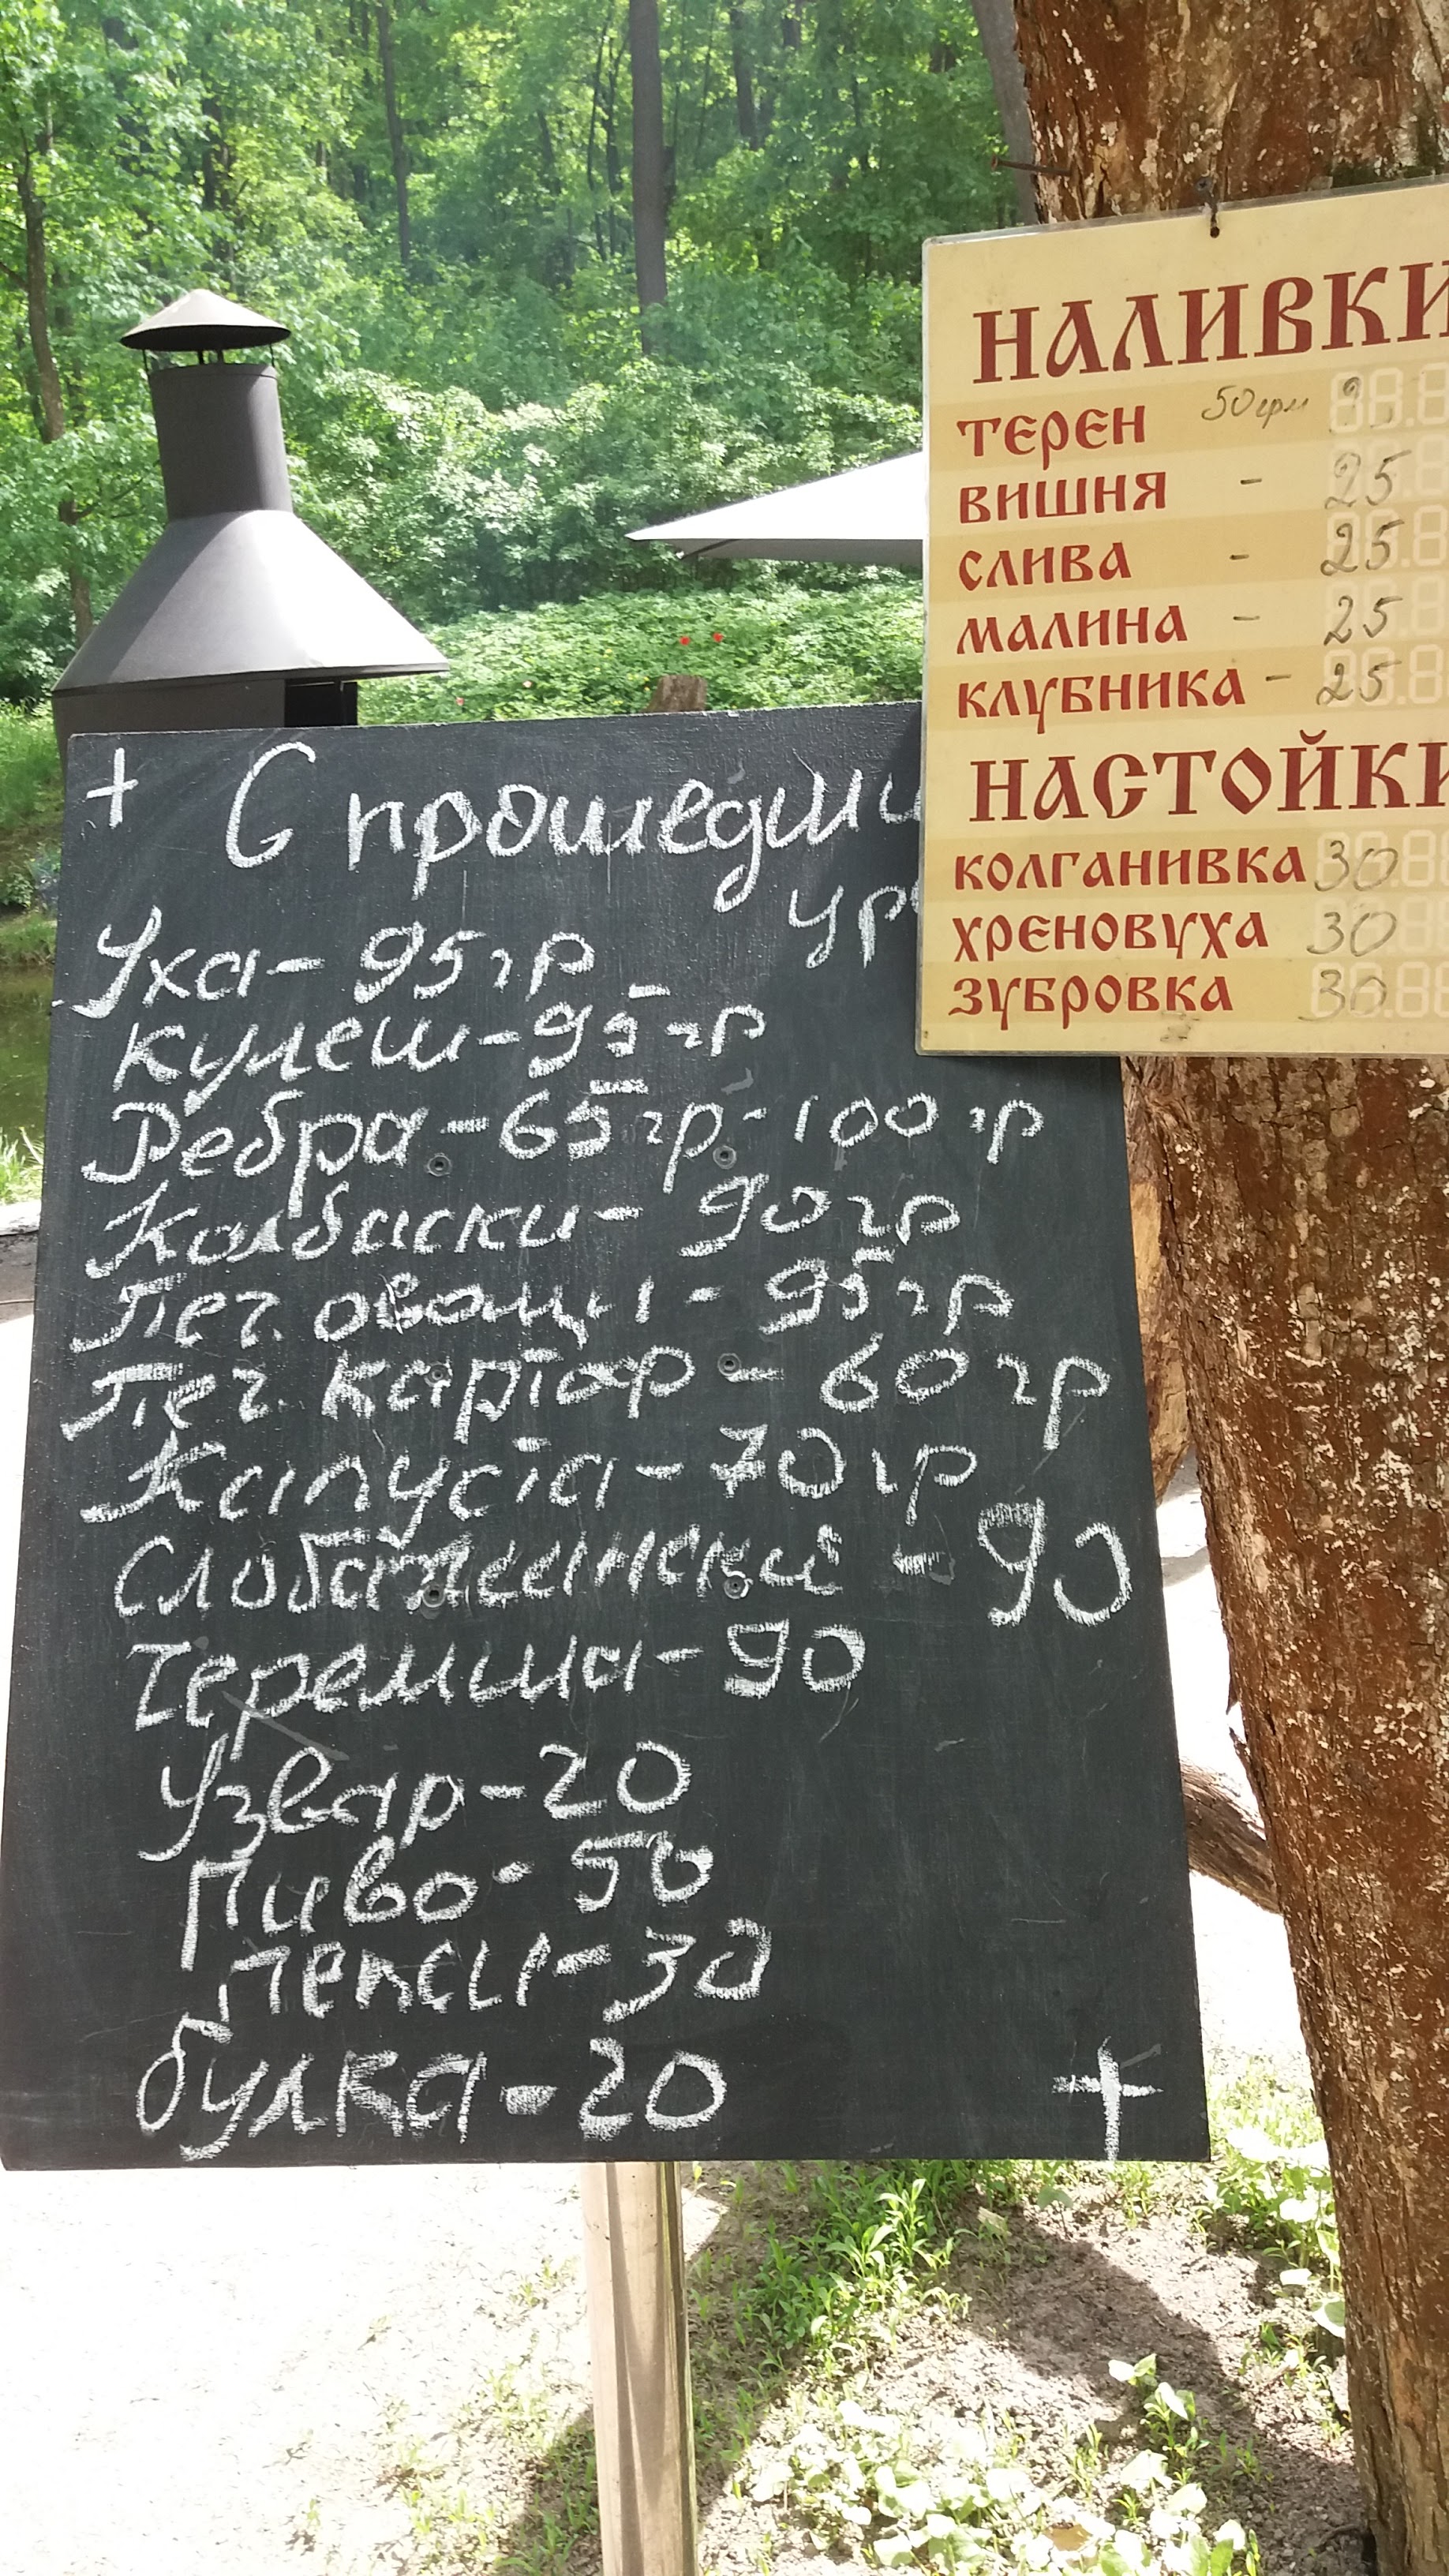 + С прошедши
ур
Уха - 95 гр
Кулеш - 95 гр
Ребра - 65 гр - 100 гр
Колбаски - 90 гр
Печ. овощи - 95 гр
Печ. картор - 60 гр
Капуста - 70 гр
Слобажанский - 90
Черемша - 90
Узвар - 20
Пиво - 50
пепси - 30
булка - 20
+
НАЛИВКИ
ТЕРЕН 50 грм
ВИШНЯ - 25
СЛИВА - 25
МАЛИНА - 25
КЛУБНИКА - 25
НАСТОЙКИ
КОЛГАНИВКА 30
ХРЕНОВУХА 30
ЗУБРОВКА 30